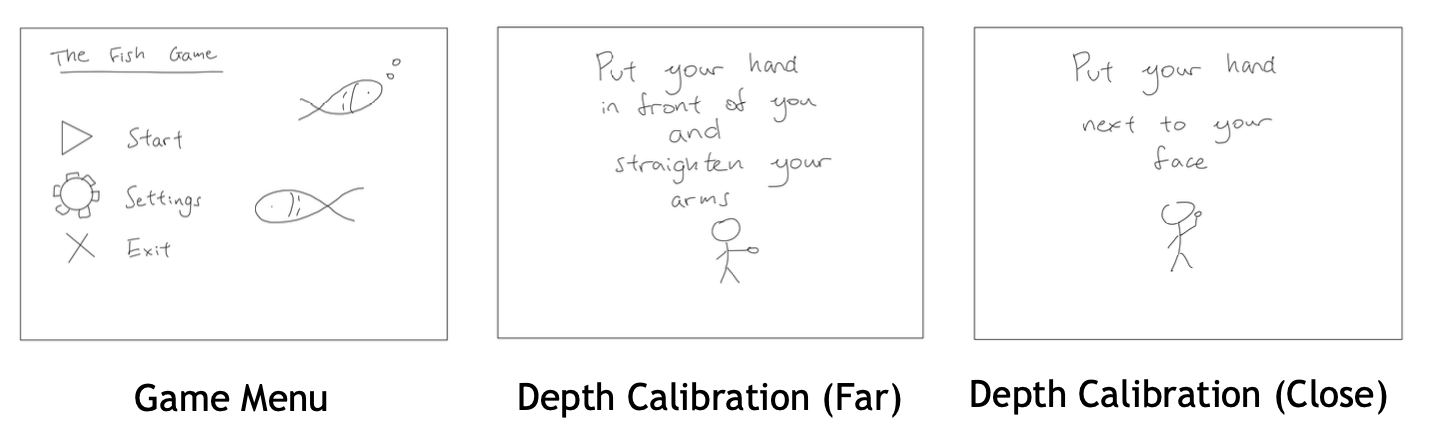 The Fish Game
Start
Settings
Exit
Game Menu
Put your hand
in front of you
and
straighten your
arms
Depth Calibration (Far)
Put your hand
next to your
face
Depth Calibration (Close)